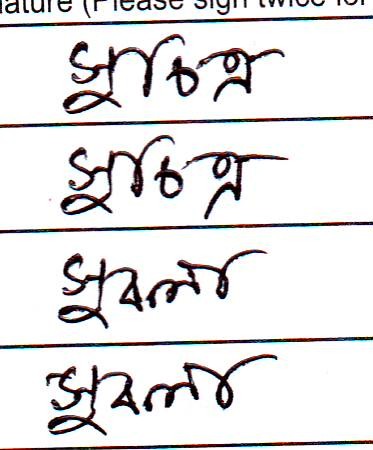 ature (Please sign twice for
সুচিত্র
সুচিত্র
সুবলা
সুবলা